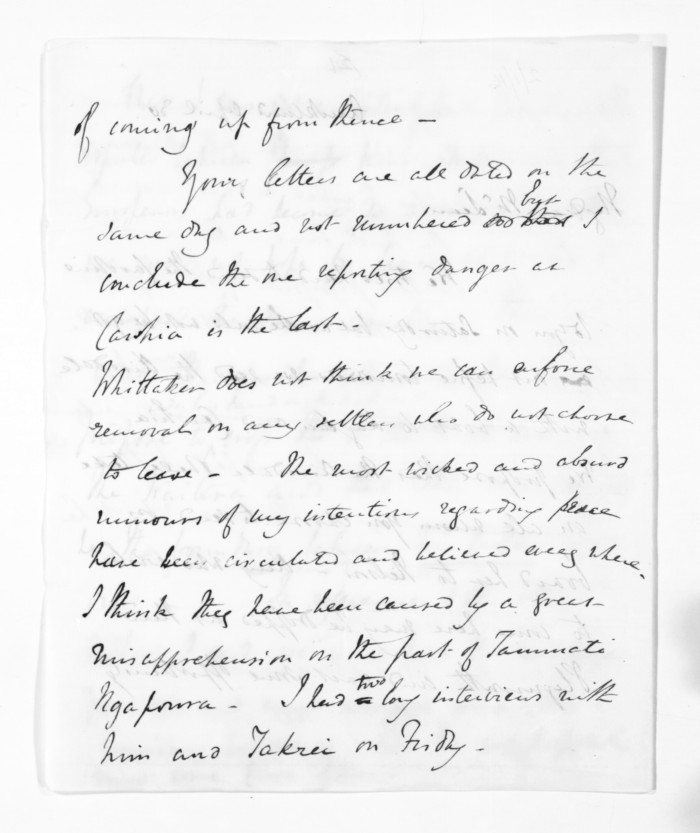 of coming up from thence -
Your letters are all dated on the
same day and not numbered but I
conclude the one reporting danger at
is the last -
Whittaker does not think we can enforce
removal on any settlers who do not choose
to leave - The most wicked and absurd
rumours of my intentions regarding peace
have been circulated and believed every where.
I think they have been caused by a great
misapprehension on the part of Tammati
Ngapowra - I had two long interviews with
him and Takrei on Friday -